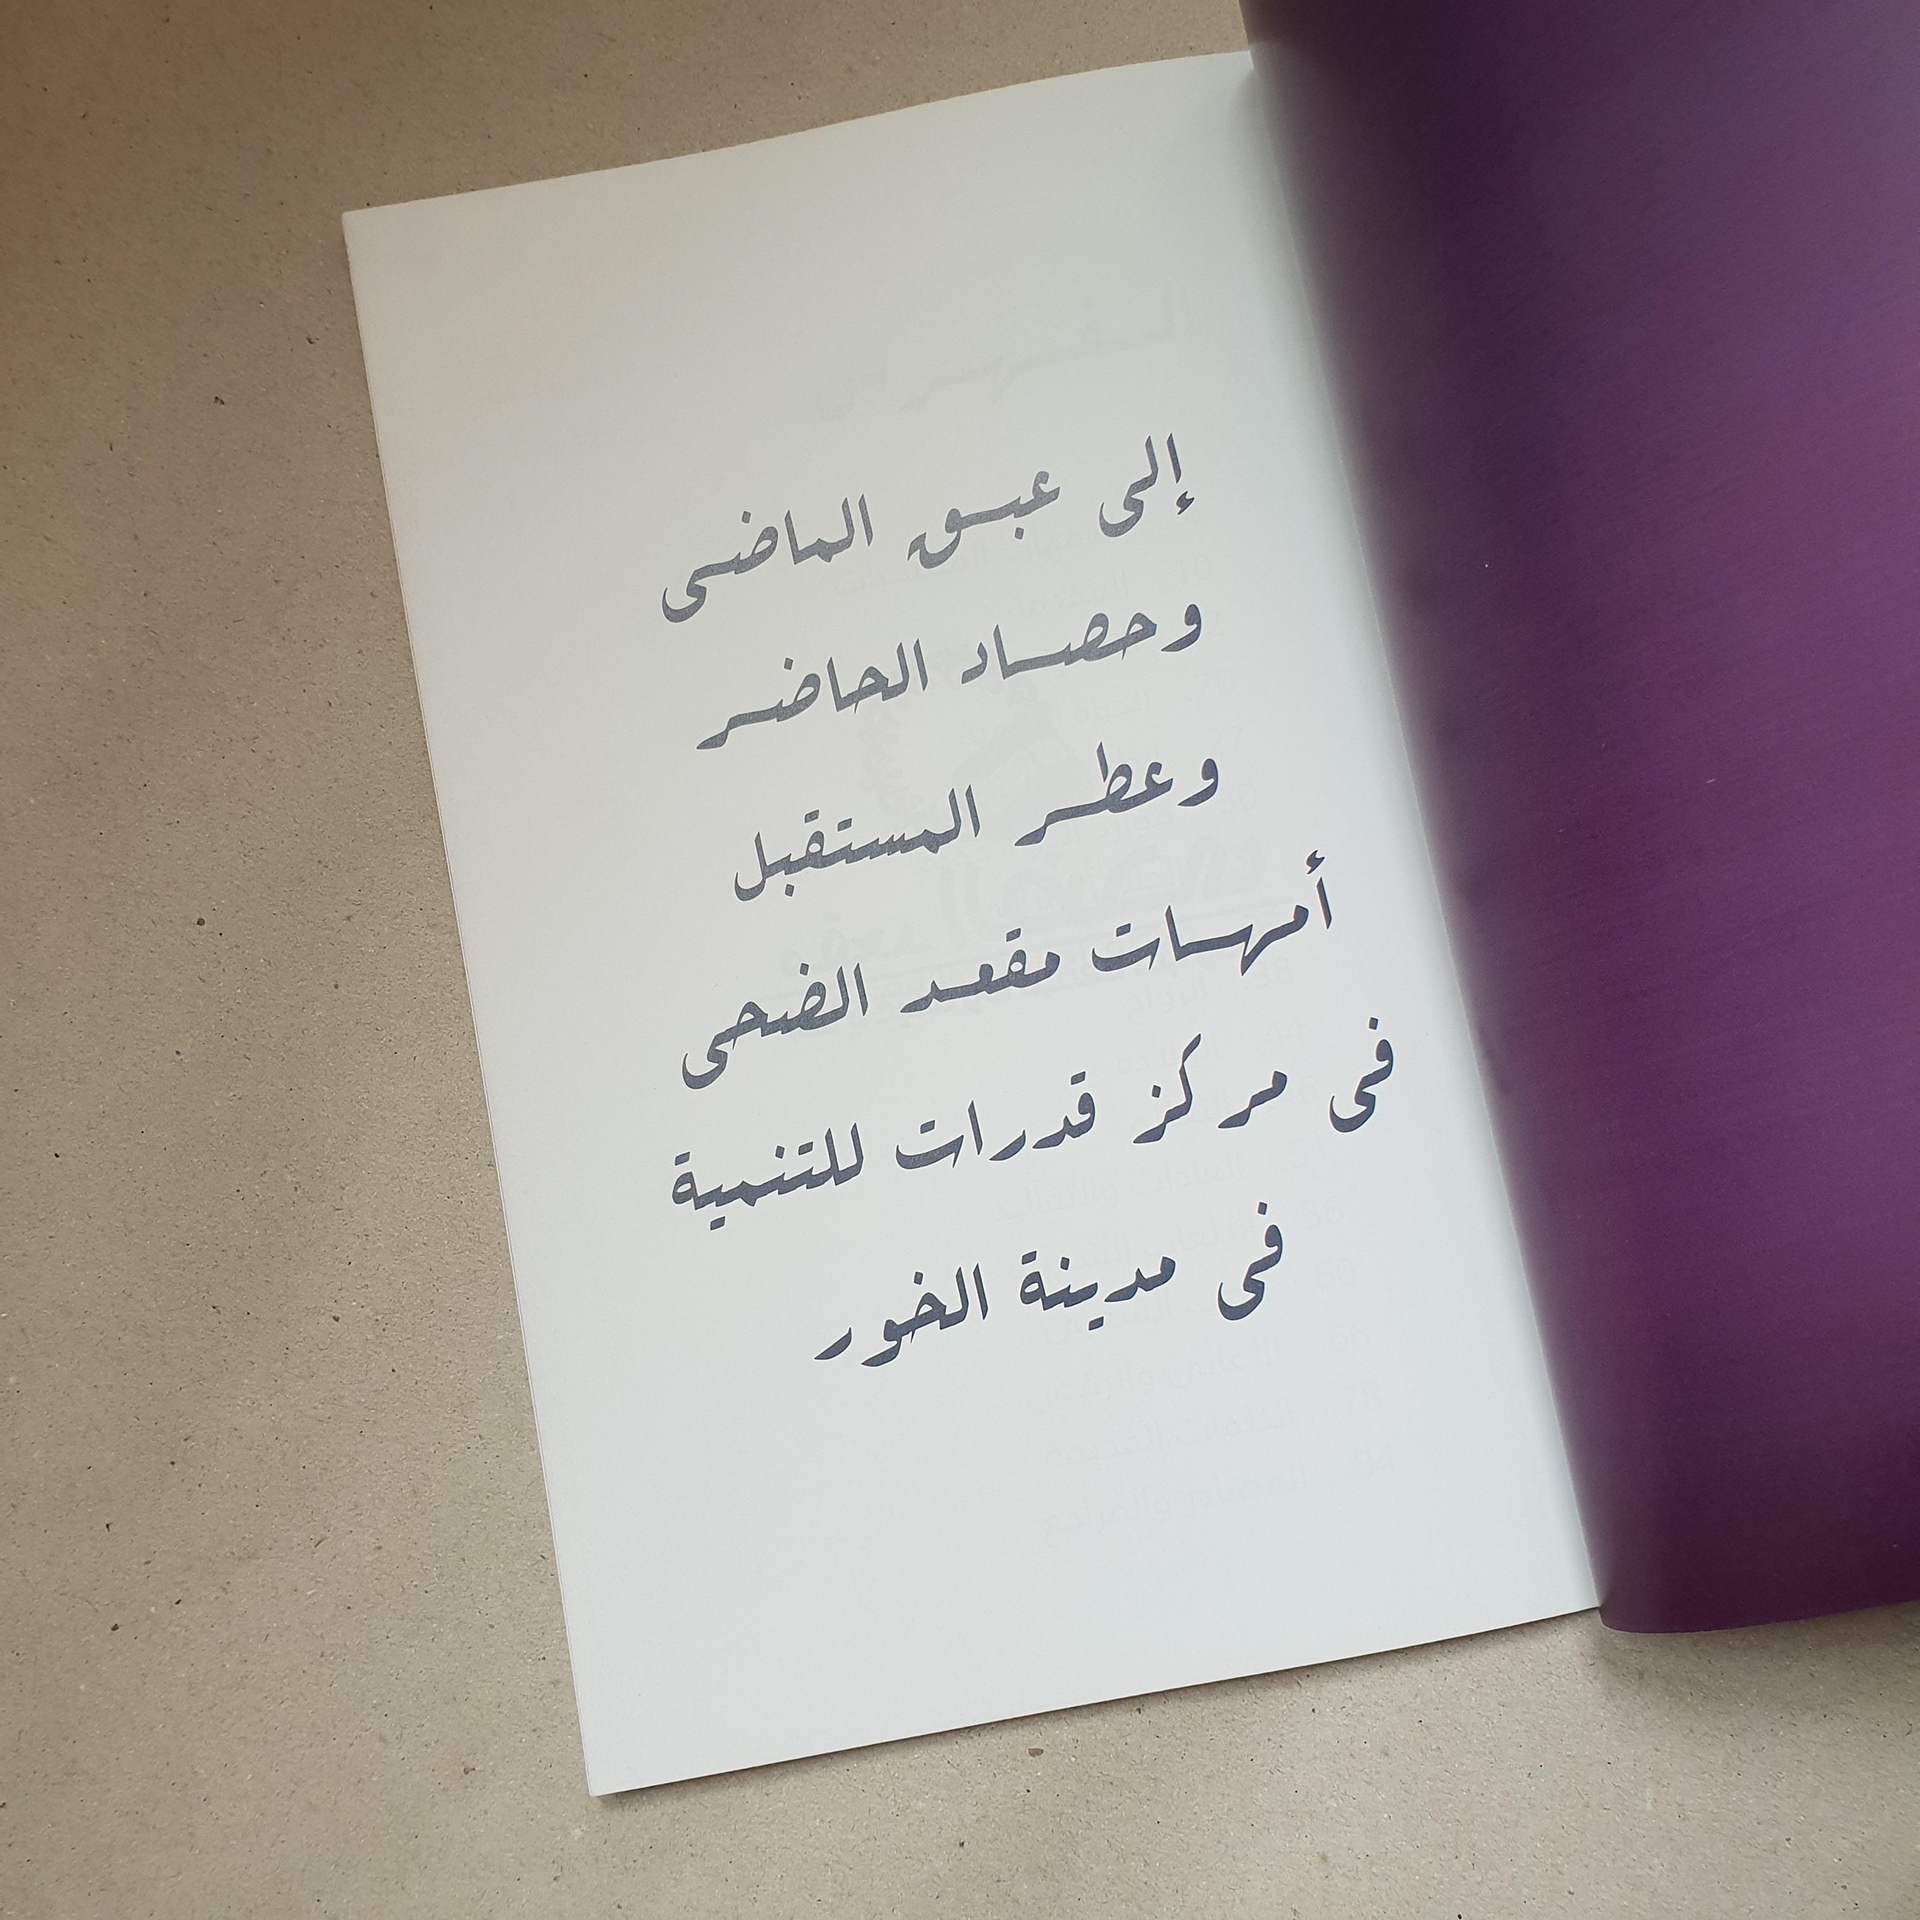 إلى عبق الماضى
وحصاد الحاضر
وعطر المستقبل
أمهات مقعد الضحى
فى مركز قدرات للتنمية
فى مدينة الخور